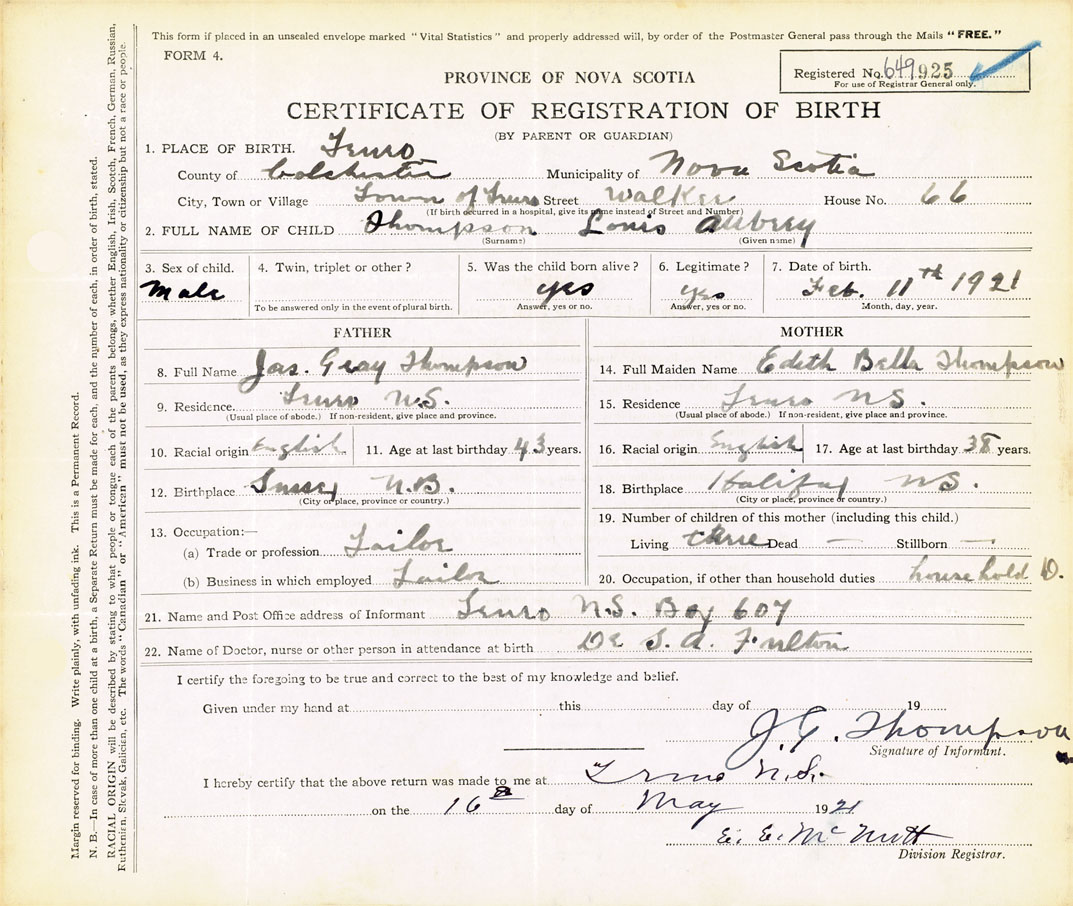 This form if placed in an unsealed envelope marked "Vital Statistics" and properly addressed will, by order of the Postmaster General pass through the Mails "FREE."
FORM 4.
Registered No. 649925
For use of Registrar General only.
PROVINCE OF NOVA SCOTIA
CERTIFICATE OF REGISTRATION OF BIRTH
(BY PARENT OR GUARDIAN)
1. PLACE OF BIRTH. Truro
County of Colchester Municipality of Nova Scotia
City, Town or Village Town of Truro Street Walker House No. 66
(If birth occurred in a hospital, give its name instead of Street and Number)
2. FULL NAME OF CHILD Thompson Louis Aubrey
(Surname) (Given name)
3. Sex of child. 4. Twin, triplet or other? 5. Was the child born alive? 6. Legitimate? 7. Date of birth.
Male yes yes Feb. 11th 1921
To be answered only in the event of plural birth. Answer, yes or no. Answer, yes or no. Month, day, year.
FATHER
8. Full Name Jas. Gray Thompson
9. Residence. Truro N.S.
(Usual place of abode.) If non-resident, give place and province.
10. Racial origin English 11. Age at last birthday 43 years.
12. Birthplace Sussex N.B.
(City or place, province or country.)
13. Occupation:—
(a) Trade or profession Tailor
(b) Business in which employed Tailor
MOTHER
14. Full Maiden Name Edith Bella Thompson
15. Residence Truro NS.
(Usual place of abode.) If non-resident, give place and province.
16. Racial origin English 17. Age at last birthday 38 years.
18. Birthplace Halifax NS.
(City or place, province or country.)
19. Number of children of this mother (including this child.)
Living three Dead — Stillborn —
20. Occupation, if other than household duties household D.
21. Name and Post Office address of Informant Truro N.S. Box 607
22. Name of Doctor, nurse or other person in attendance at birth Dr S. A. Fulton
I certify the foregoing to be true and correct to the best of my knowledge and belief.
Given under my hand at this day of 19
J. G. Thompson
Signature of Informant.
I hereby certify that the above return was made to me at Truro N.S.
on the 16th day of May 1921
E. E. McNutt
Division Registrar.
Margin reserved for binding. Write plainly, with unfading ink. This is a Permanent Record.
N. B.—In case of more than one child at a birth, a Separate Return must be made for each, and the number of each, in order of birth, stated.
RACIAL ORIGIN will be described by stating to what people or tongue each of the parents belongs, whether English, Irish, Scotch, French, German, Russian,
Ruthenian, Slovak, Galician, etc. The words "Canadian" or "American" must not be used, as they express nationality or citizenship but not a race or people.